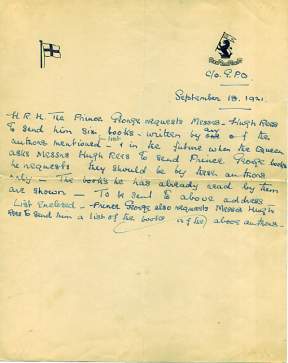 C/o G.P.O.
September 18. 1921.
H.R.H. The Prince George requests Messrs Hugh Rees
To send him six books - written by any of the
authors mentioned list & in the future when the Queen
asks Messrs Hugh Rees to send Prince George books
he requests they should be by these authors
only - The books he has already read by them
are shown - To be sent to above address
List Enclosed - Prince George also requests Messrs Hugh
Rees to send him a list of the books of the above authors -